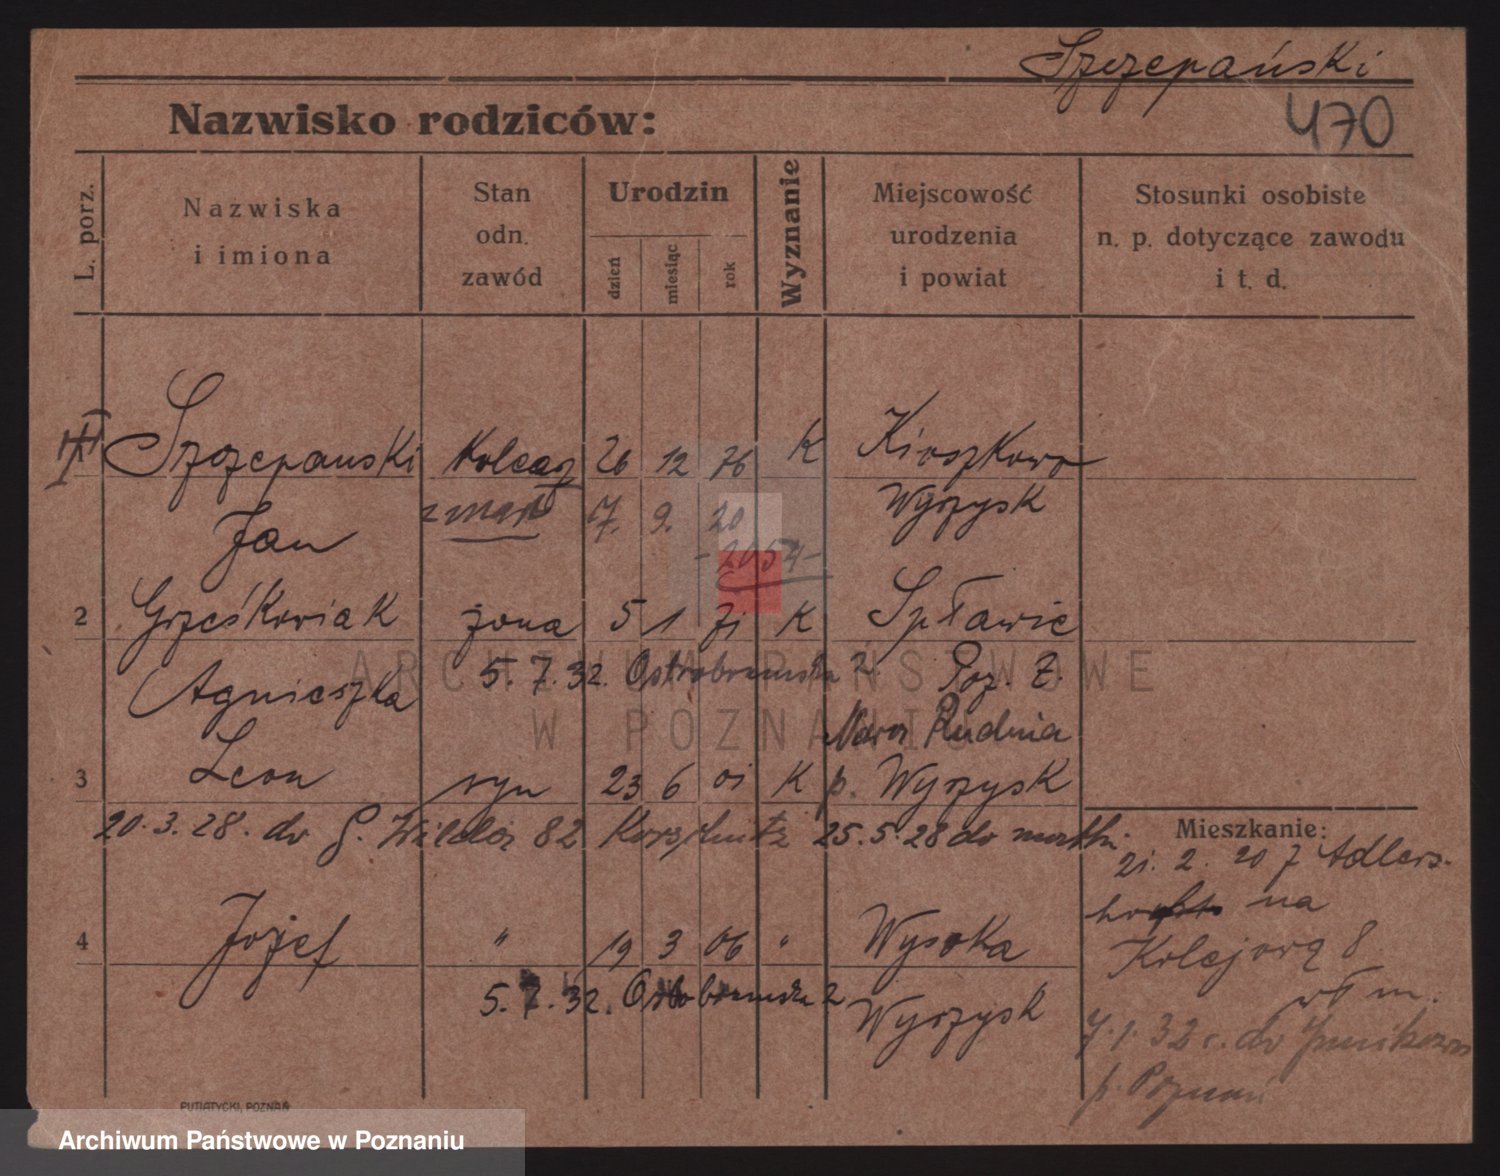 Szczepański
470
Nazwisko rodziców:
L. porz.
Nazwiska
i imiona
Stan
odn.
zawód
Urodzin
dzień
miesiąc
rok
Wyznanie
Miejscowość
urodzenia
i powiat
Stosunki osobiste
n. p. dotyczące zawodu
i t. d.
Szczepanski 26 12 76 K
Wyrzysk
Jan zmarł 17. 9. 20
-2054-
2 Grześkowiak żona 5 1 71 K Spławie
Agnieszka 5. 7. 32. Ostrobramska 2 Poz. Z.
Rudnia
3 Leon syn 23 6 01 K p. Wyrzysk
20. 3. 28. do 82 25. 5. 28 do matki
Mieszkanie:
21. 2. 20 z Adlers-
na
4 Józef " 19 3 06 " Wysoka
Kolejową 8
5. 7. 32. Ostrobramska 2 Wyrzysk
7. 1. 32 do
p. Poznań
PUTIATYCKI, POZNAŃ
ARCHIWUM PAŃSTWOWE
W POZNANIU
Archiwum Państwowe w Poznaniu